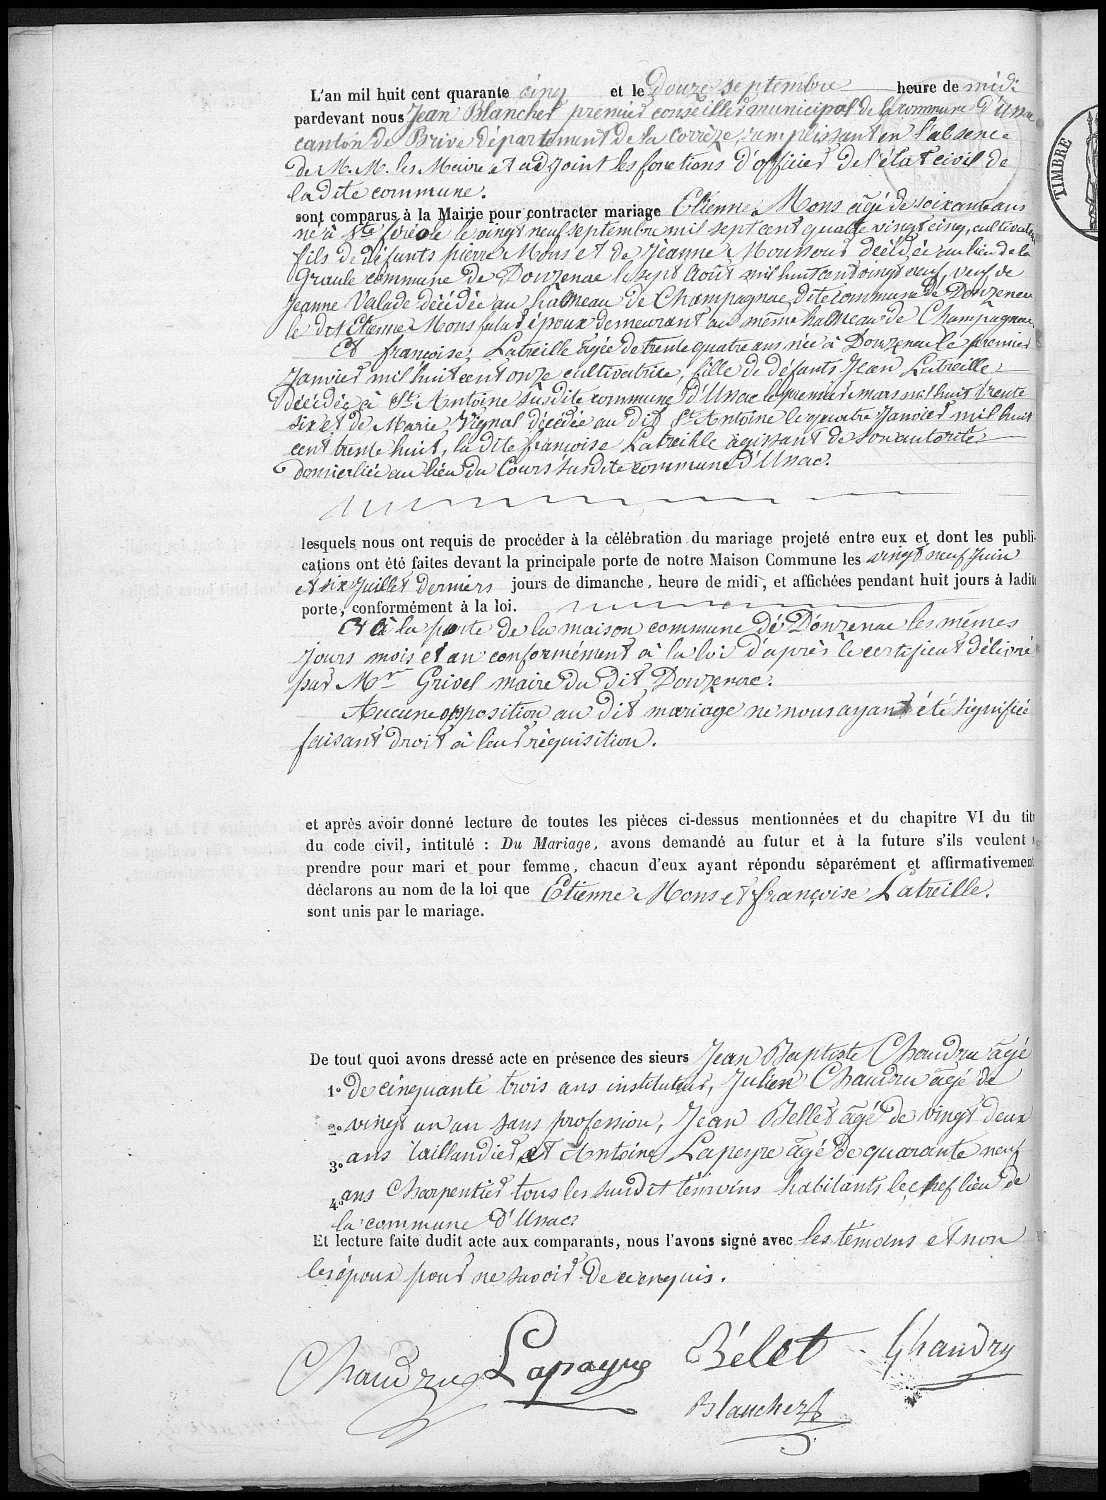 L'an mil huit cent quarante cinq et le Douze septembre heure de midi
pardevant nous Jean Blancher premier conseiller municipal de la commune d'Ussac
canton de Brive département de la Corrèze, remplissant en l'absence
de M.M. les Maire et adjoint les fonctions d'officier de l'état civil de
la dite commune.
sont comparus à la Mairie pour contracter mariage Etienne Mons âgé de soixante ans
né à Ste féréole le vingt neuf septembre mil sept cent quatre vingt cinq, cultivateur
fils de défunts pierre Mons et de Jeanne Moussour décédée au lieu de la
Graule commune de Donzenac le sept Août mil huit cent vingt neuf, veuf de
Jeanne Valade décédée au hameau de Champagnac dite commune de Donzenac
le dit Etienne Mons futur époux demeurant au même hameau de Champagnac.
Et françoise Latreille agée de trente quatre ans née à Donzenac le premier
Janvier mil huit cent onze cultivatrice, fille de défunts Jean Latreille
décédée à St Antoine susdite commune d'Ussac le premier mars mil huit trente
six et de Marie Vignal décédée au dit St Antoine le quatre Janvier mil huit
cent trente huit, la dite françoise Latreille agissant de son autorité
domiciliée au lieu du Cours susdite commune d'Ussac.
lesquels nous ont requis de procéder à la célébration du mariage projeté entre eux et dont les publi-
cations ont été faites devant la principale porte de notre Maison Commune les vingt neuf Juin
et six Juillet derniers jours de dimanche, heure de midi, et affichées pendant huit jours à ladite
porte, conformément à la loi.
Et à la porte de la maison commune de Donzenac les mêmes
jours mois et an conformément à la loi d'après le certificat délivré
par Mr Grivel maire du dit Donzenac.
Aucune opposition au dit mariage ne nous ayant été signifiée
faisant droit à leur réquisition.
et après avoir donné lecture de toutes les piéces ci-dessus mentionnées et du chapitre VI du tit
du code civil, intitulé : Du Mariage, avons demandé au futur et à la future s'ils veulent s
prendre pour mari et pour femme, chacun d'eux ayant répondu séparément et affirmativement
déclarons au nom de la loi que Etienne Mons et françoise Latreille.
sont unis par le mariage.
De tout quoi avons dressé acte en présence des sieurs Jean Baptiste Chaudru âgé
1° de cinquante trois ans instituteur, Julien Chaudru âgé de
2° vingt un an sans profession, Jean Bellet âgé de vingt deux
3° ans taillandier et Antoine Lapeyre âgé de quarante neuf
4° ans Charpentier tous les susdit témoins habitants le chef lieu de
la commune d'Ussac
Et lecture faite dudit acte aux comparants, nous l'avons signé avec les témoins et non
les époux pour ne savoir de ce enquis.
Chaudru Lapayre Bélet Chaudru
Blancher
TIMBRE